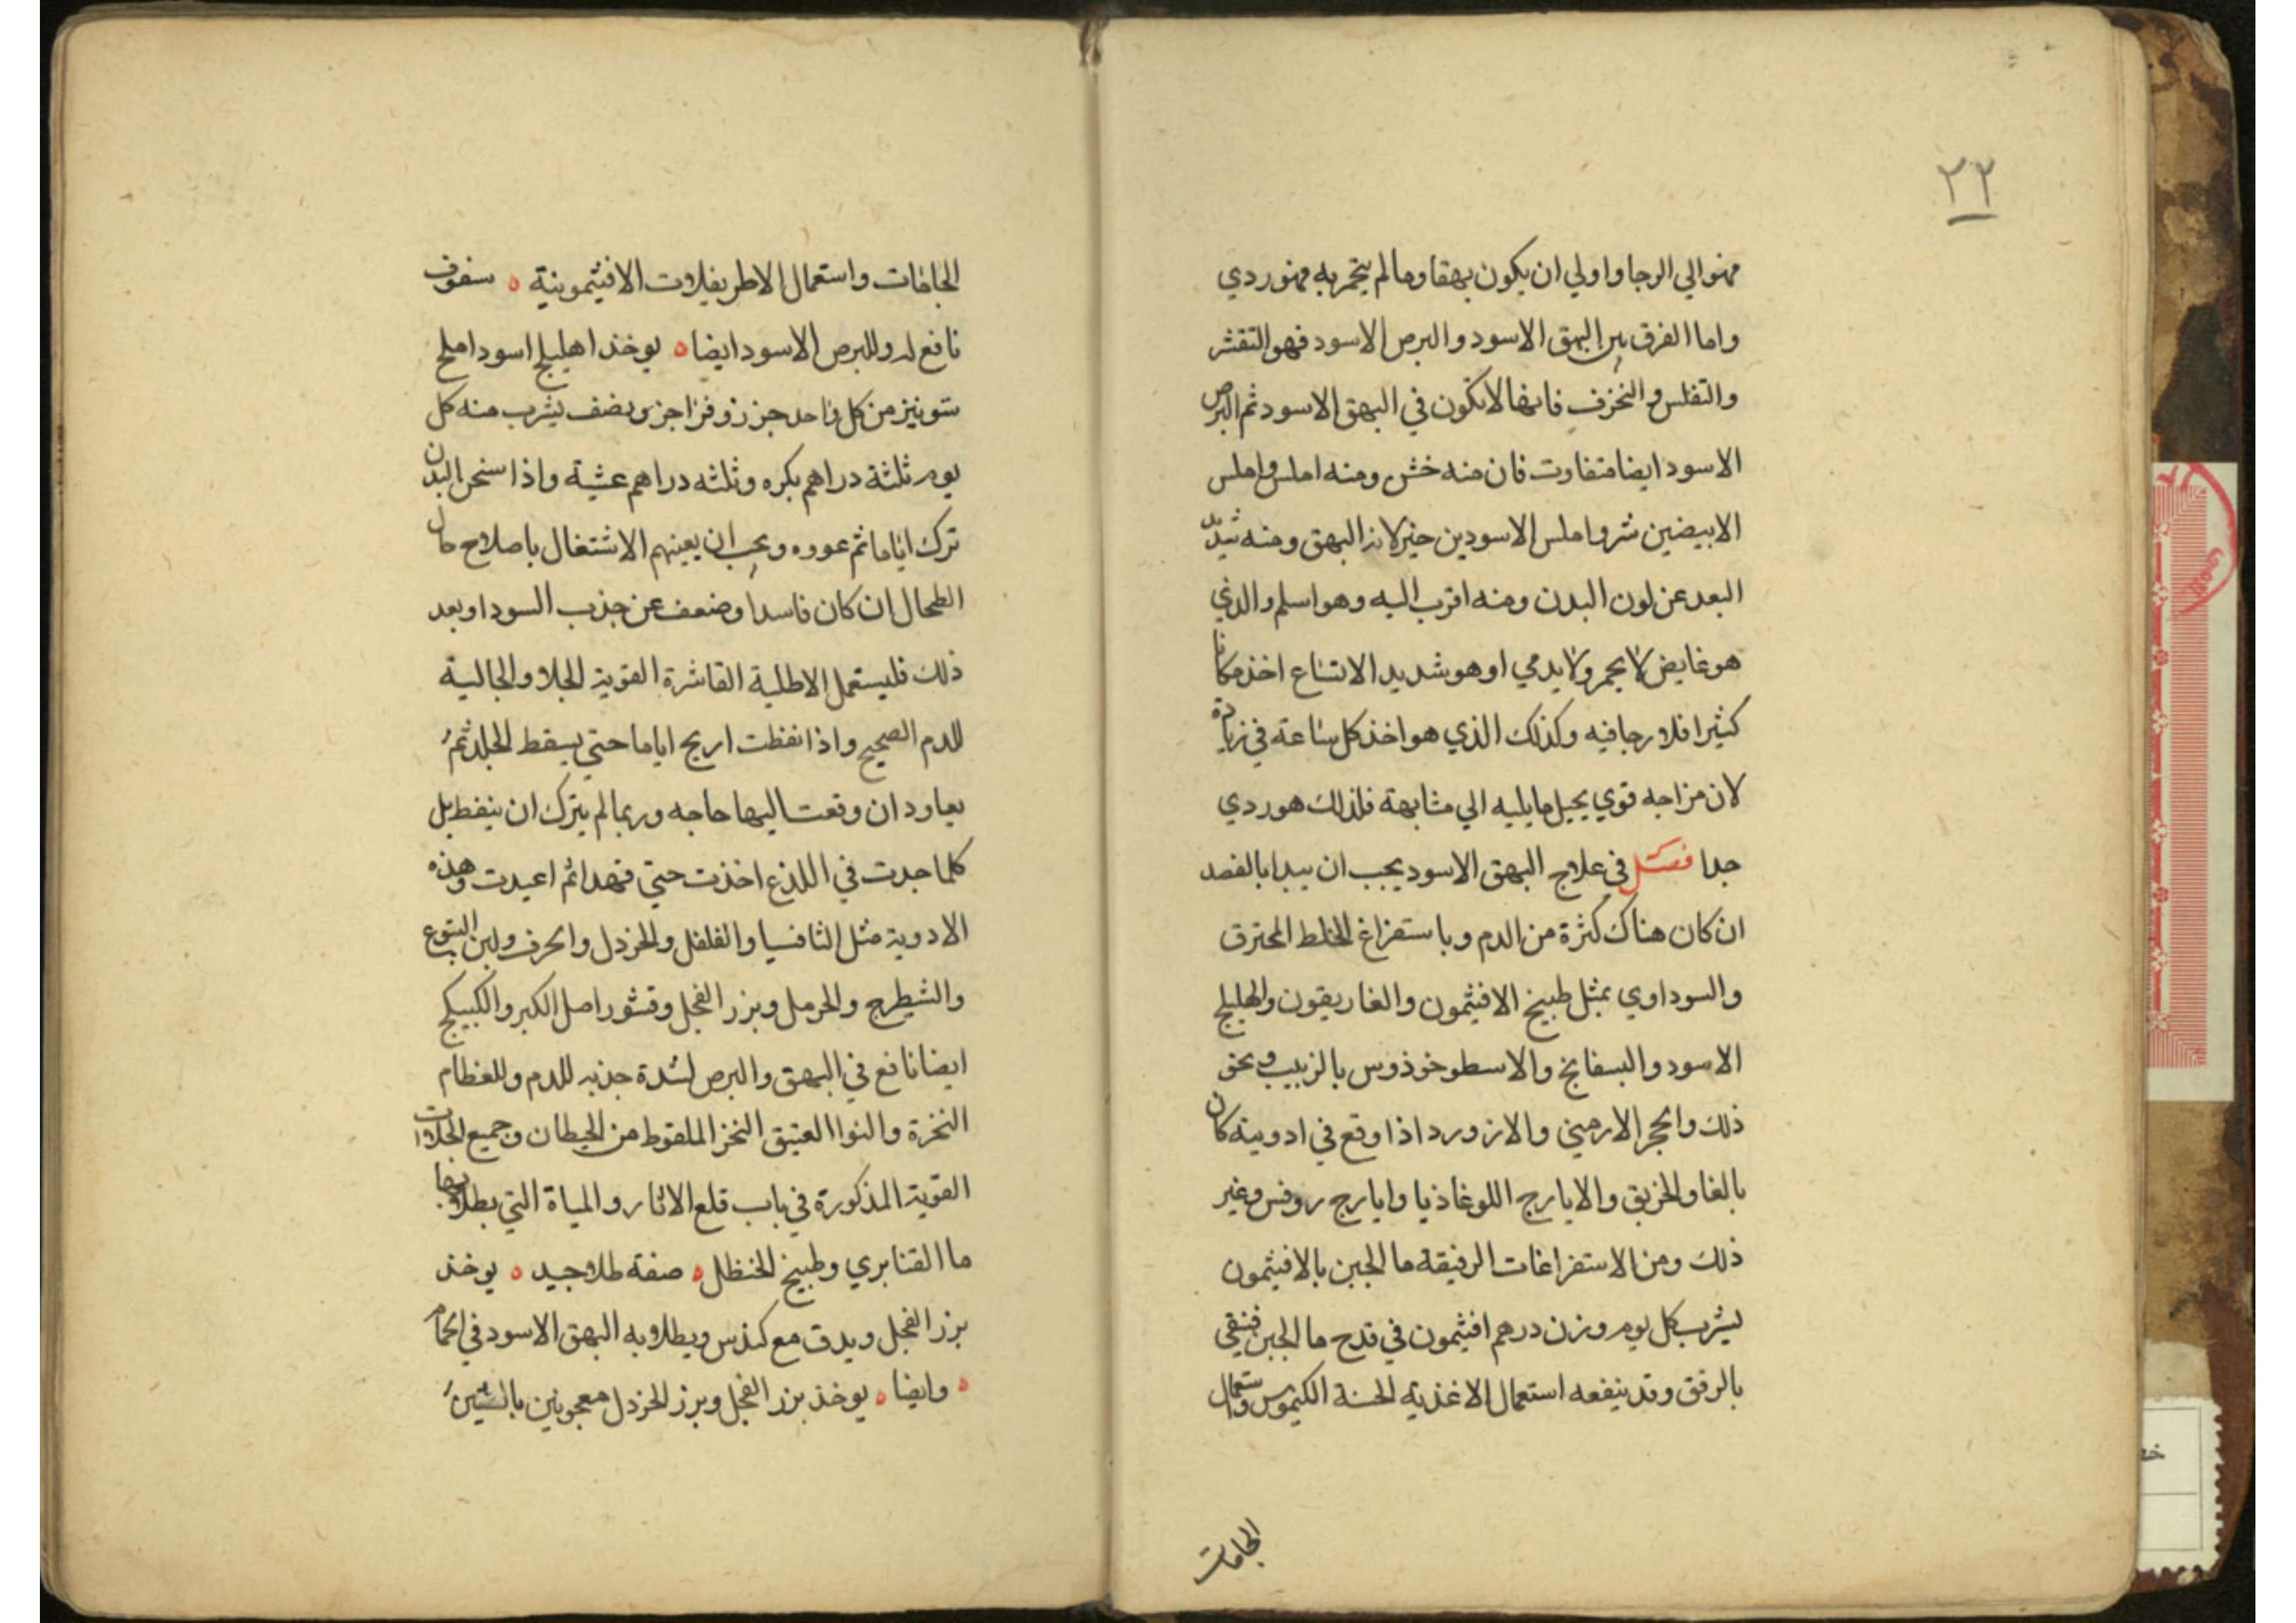 ٢٢
فهو الي الرجا واولي ان يكون بهقا وما لم يحمر به فهو ردي
واما الفرق بين البهق الاسود والبرص الاسود فهو التقشر
والتفلس والتخزف فانها لا تكون في البهق الاسود ثم البرص
الاسود ايضا متفاوت فان منه خشن ومنه املس واملس
الابيضين شر واملس الاسودين خير لانه البهق ومنه شديد
البعد عن لون البدن ومنه اقرب اليه وهو اسلم والذي
هو غايض لا يحمر ولا يدمي او هو شديد الاتساع اخذ مكانا
كثيرا فلا رجا فيه وكذلك الذي هو اخذ كل ساعة في زيادة
لان مزاجه قوي يحيل ما يليه الي مشابهة فلذلك هو ردي
جدا فصل في علاج البهق الاسود يجب ان يبدا بالفصد
ان كان هناك كثرة من الدم وباستفراغ الخلط المحترق
والسوداوي بمثل طبيخ الافثيمون والغاريقون والهليلج
الاسود والبسفايج والاسطوخوذوس بالزبيب ونحو
ذلك والحجر الارميني والازورد اذا وقع في ادويته كان
بالغا والخربق والايارج اللوغاذيا وايارج روفس وغير
ذلك ومن الاستفراغات الرقيقة ما الجبن بالافثيمون
يشرب كل يوم وزن درهم افثيمون في قدح ما الجبن فنقي
بالرفق وقد ينفعه استعمال الاغذية الحسنة الكيموس واستعمال
الحامات
الحامات واستعمال الاطريفلات الافيثمونية ه سفوف
نافع له وللبرص الاسود ايضا ه يوخذ اهليلج اسود املج
شونيز من كل واحد جزء زوفرا جزء ونصف يشرب منه كل
يوم ثلثة دراهم بكره وثلثه دراهم عشية واذا سخن البدن
ترك اياما ثم عووه ويجب ان يعينهم الاشتغال باصلاح حال
الطحال ان كان فاسدا وضعف عن جذب السودا وبعد
ذلك فليستعمل الاطلية القاشرة القوية الجلا والجالية
للدم الصحيح واذا نفظت اريح اياما حتي يسقط الجلد ثم
يعاود ان وقعت اليها حاجه وربما لم يترك ان ينفط بل
كلما جدت في اللذع اخذت حتي تهدا ثم اعيدت وهذه
الادوية مثل الثافسيا والفلفل والخردل والحرف ولبن اليتوع
والشيطرج والحرمل وبزر الفجل وقشور اصل الكبر والكبيكج
ايضا نافع في البهق والبرص لشدة جذبه للدم وللعظام
النخرة والنوا العتيق النخر الملقوط من الحيطان وجميع الجلاات
القوية المذكورة في باب قلع الاثار والمياة التي يطلا بها
ما القنابري وطبيخ الحنظل ه صفة طلا جيد ه يوخذ
بزر الفجل ويدق مع كندس ويطلا به البهق الاسود في الحمام
ه وايضا ه يوخذ بزر الفجل وبزر الخردل معجونين بالتين